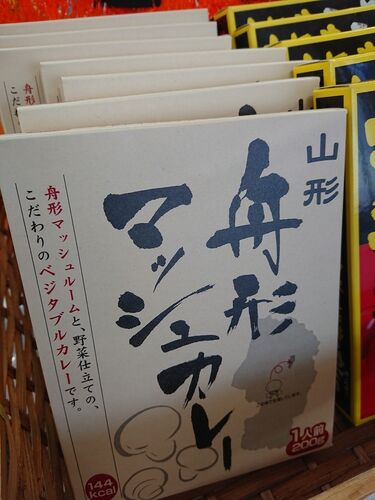 山形
舟形
マッシュカレー
舟形マッシュルームと、野菜仕立ての、
こだわりのベジタブルカレーです。
1人前
200g
144
kcal